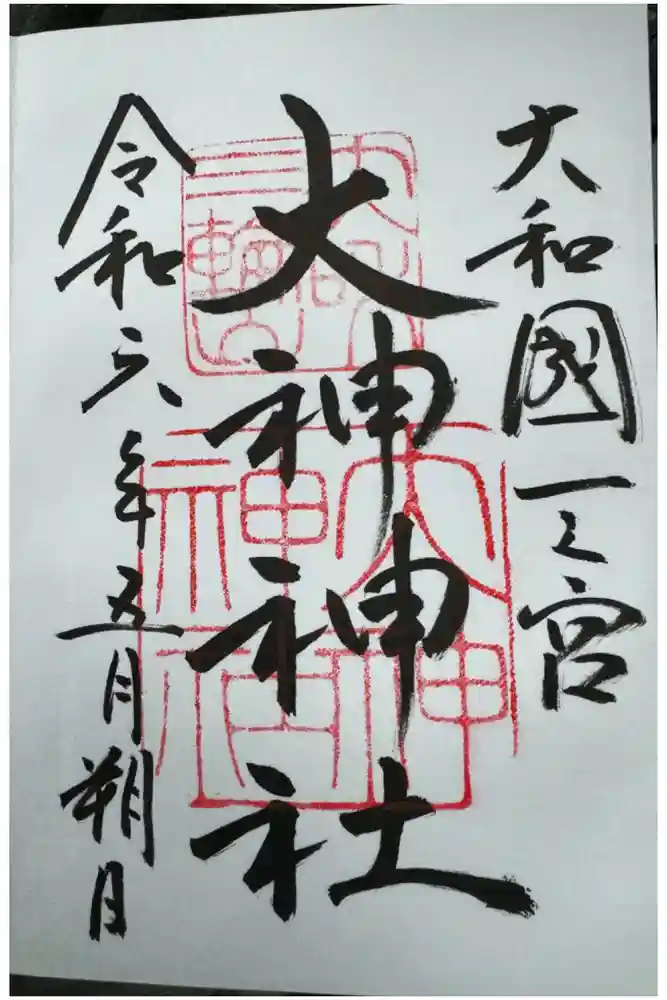 大和國一之宮
大神神社
令和六年五月朔日
大神神社